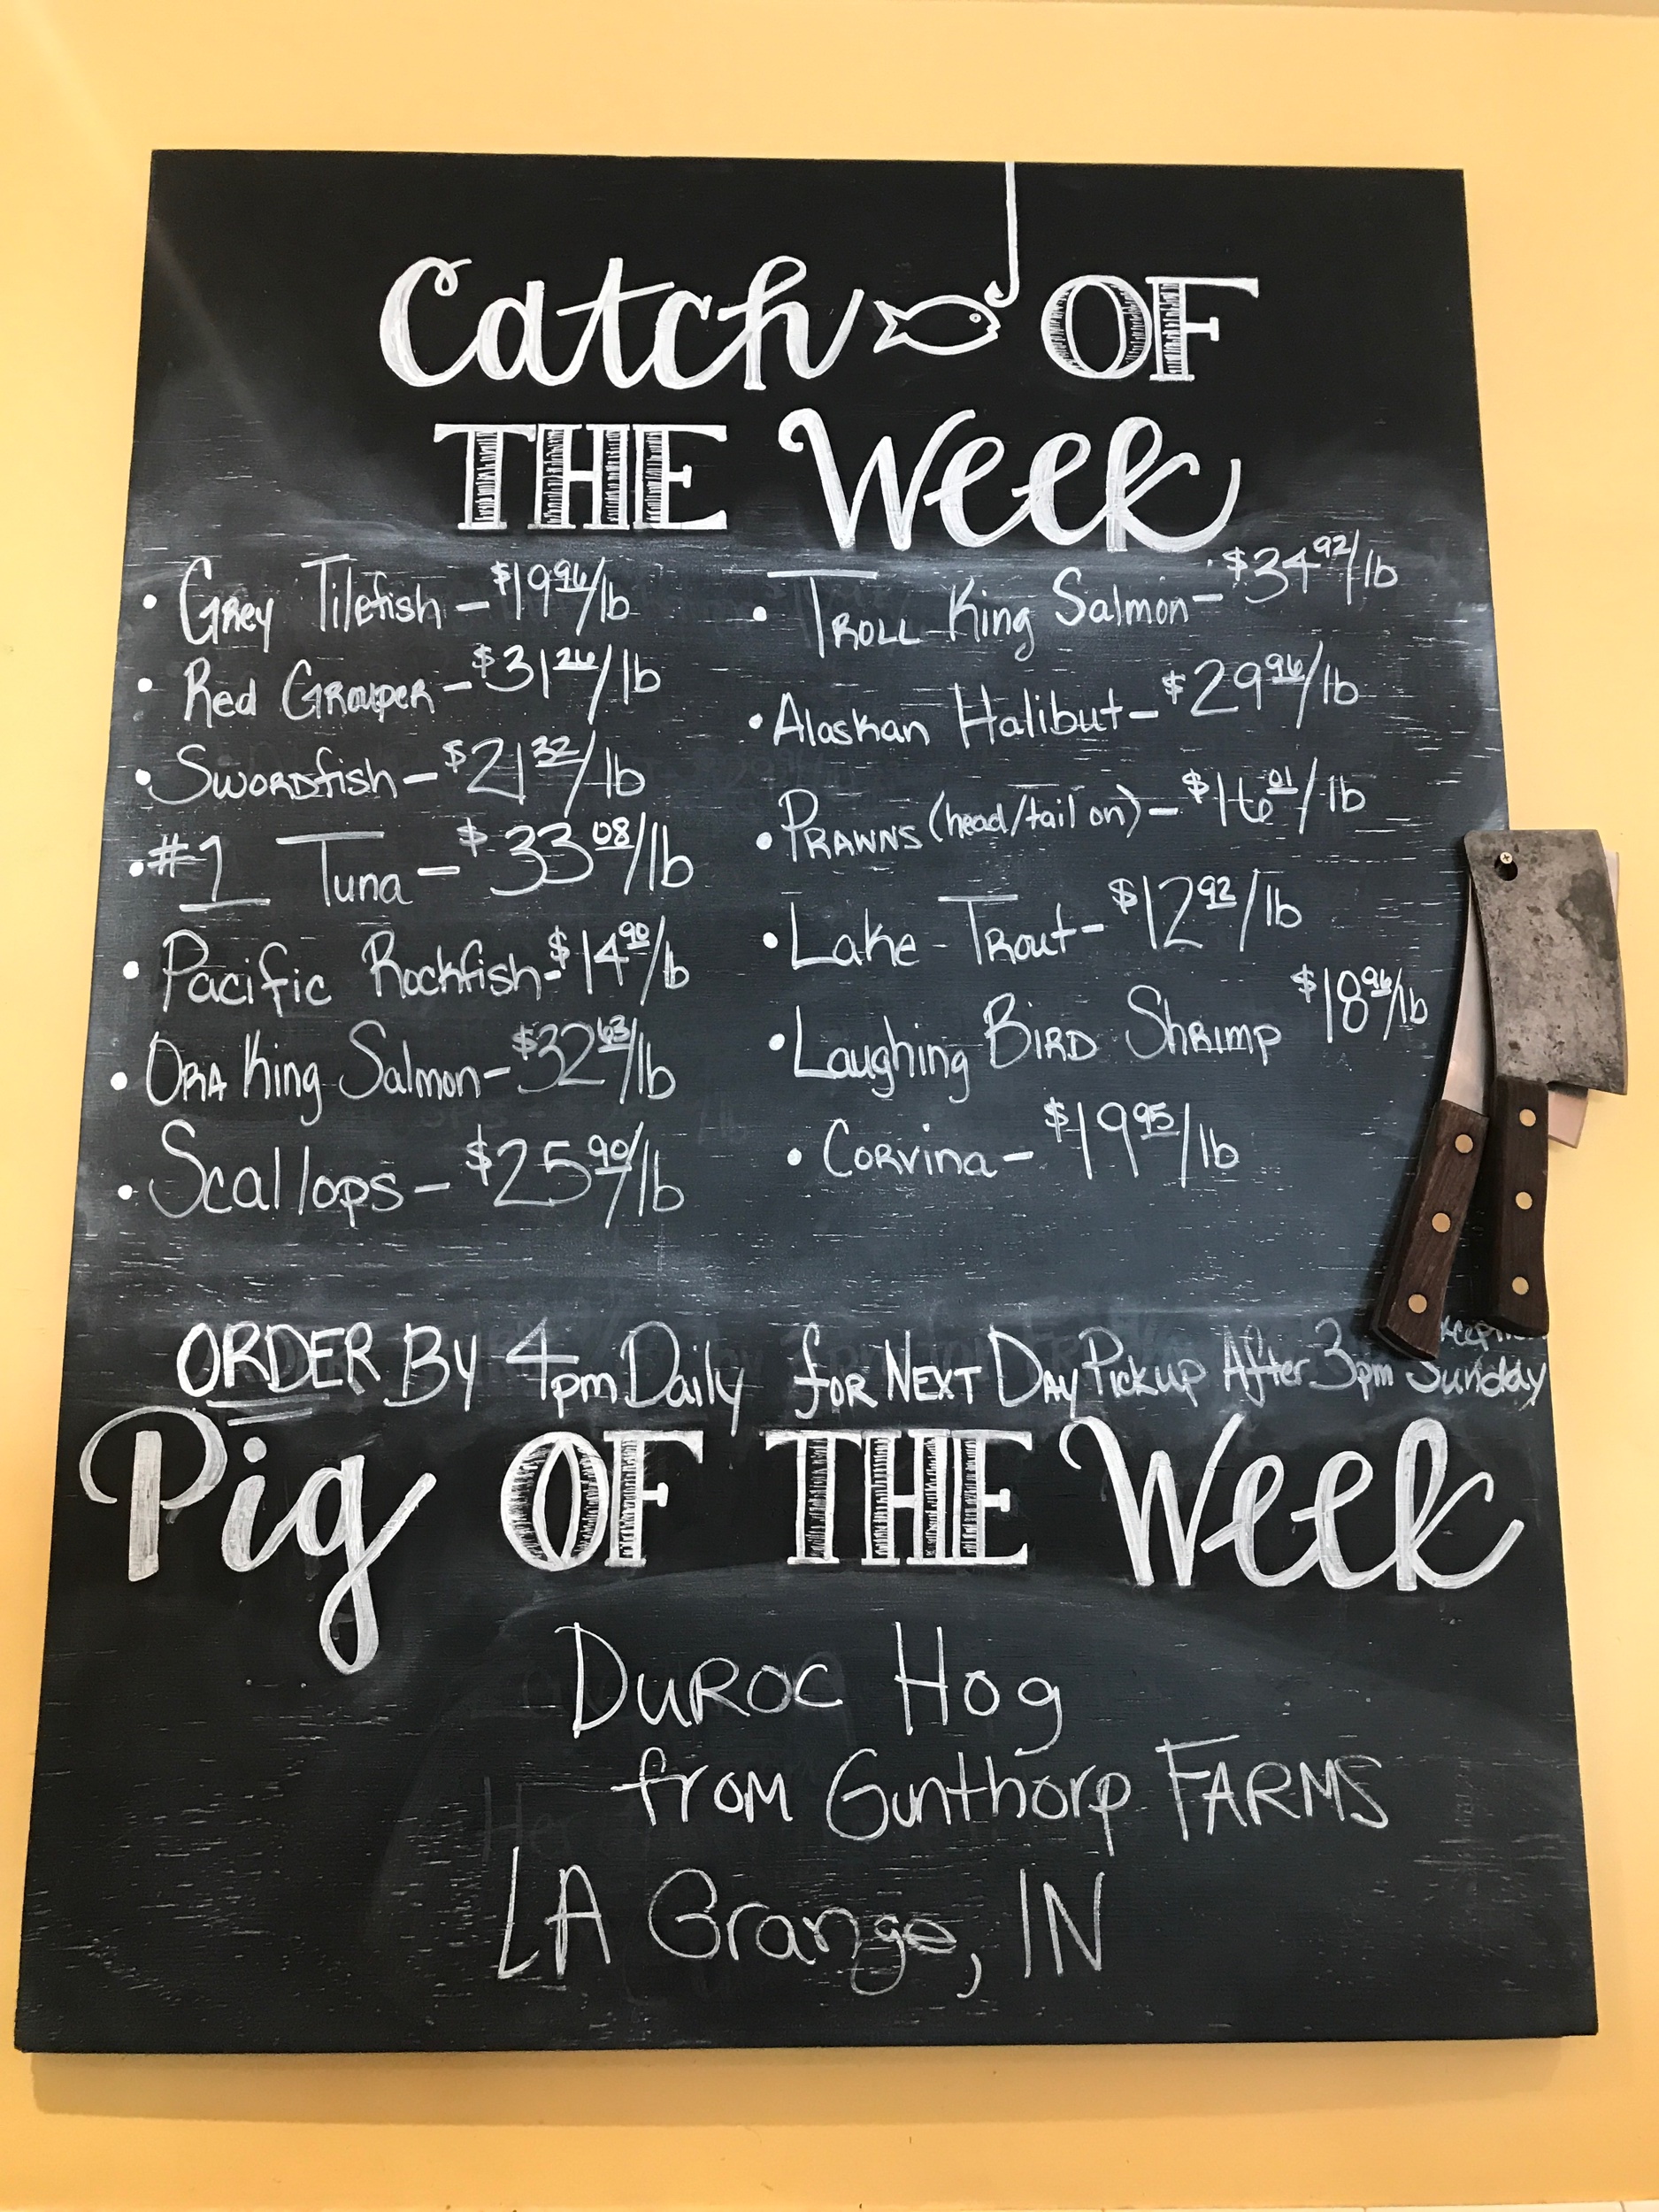 Catch OF
THE Week
• Grey Tilefish – $19.96/lb
• Red Grouper – $31.26/lb
• Swordfish – $21.32/lb
• #1 Tuna – $33.08/lb
• Pacific Rockfish - $14.90/lb
• ORA King Salmon – $32.63/lb
• Scallops – $25.90/lb
• TROLL King Salmon – $34.92/lb
• Alaskan Halibut – $29.96/lb
• PRAWNS (head/tail on) – $16.01/lb
• Lake Trout – $12.92/lb
• Laughing BIRD Shrimp $18.96/lb
• Corvina – $19.95/lb
ORDER By 4pm Daily for NEXT Day Pickup After 3pm Sunday
Pig OF THE Week
DUROC Hog
from Gunthorp FARMS
LA Grange, IN